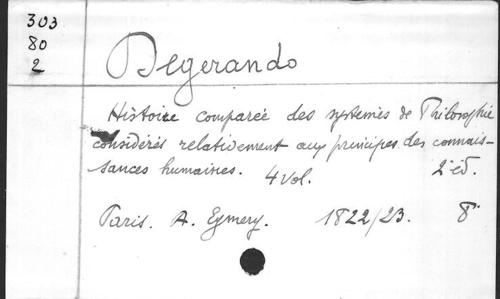 303
80
2
Degerando
Histoire comparée des systemes de Philosophie
considérés relativement aux principes des connais-
sances humaines. 4 vol. 2e éd.
Paris. A. Eymery. 1822/23. 8°